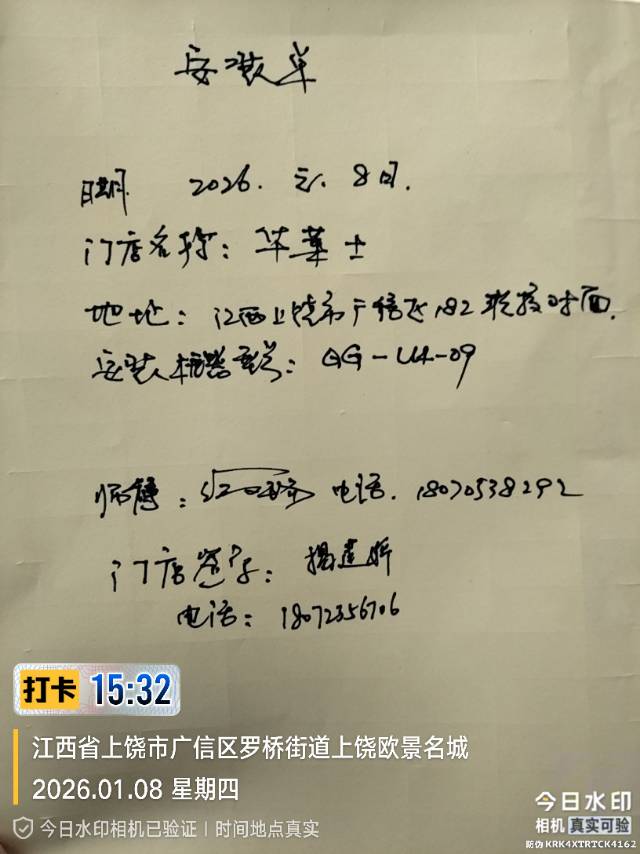 安装单
日期 2026. 元. 8日.
门店名称：华莱士
地址：江西上饶市广信区182 对面.
安装机器型号：QG-UA-09
师傅： 电话. 18070538292
门店签字：杨建昕
电话：18072356706
打卡 15:32
江西省上饶市广信区罗桥街道上饶欧景名城
2026.01.08 星期四
今日水印相机已验证 | 时间地点真实
今日水印
相机 真实可验
防伪 KRK4XTRTCK4162